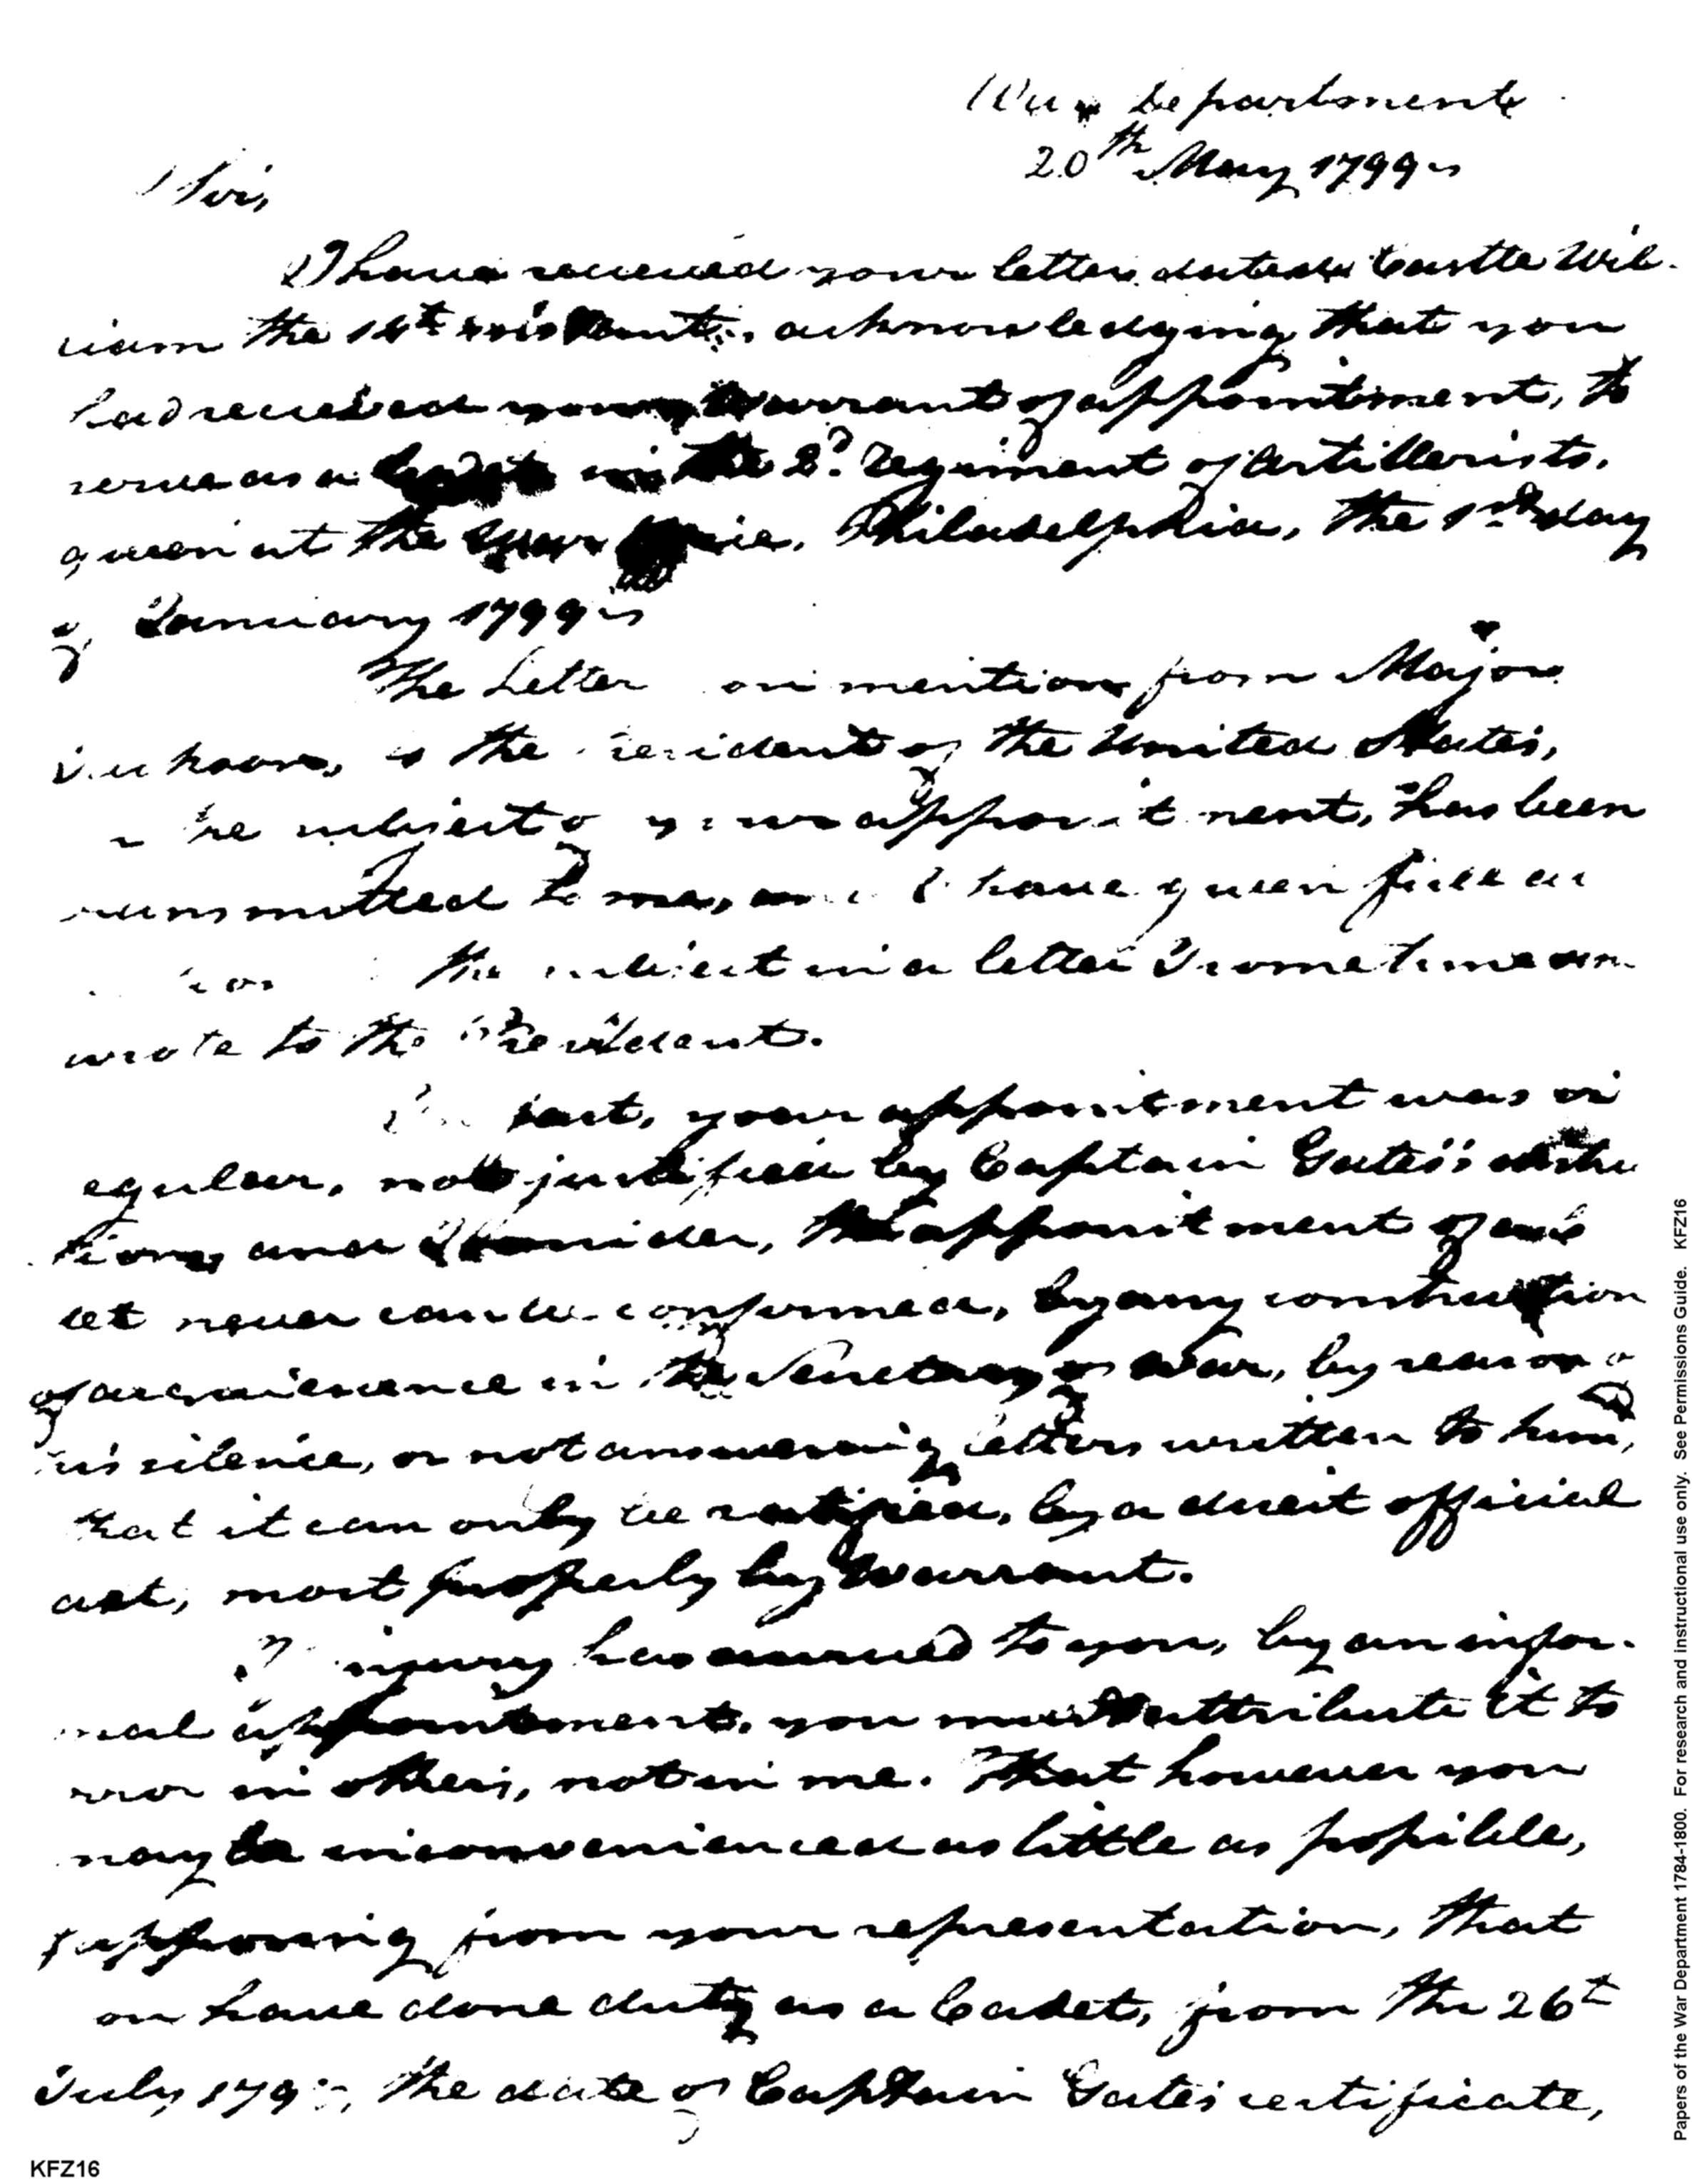 War Department
20th May 1799
Sir,
I have received your letter dated Castle Wil-
liam the 14th instant, acknowledging that you
had received your warrant of appointment, to
serve as a Cadet in the 2d. Regiment of Artillerists,
given at the war office, Philadelphia, the 1st day
of January 1799
The Letter you mention from Major
Jackson, to the President of the United States,
on the subject of your appointment, has been
transmitted to me, and I have given
the subject in a letter I some time
wrote to the President.
In fact, your appointment was ir
regular, not justified by Captain Gates's
tions, and I consider, the appointment of a Ca
det never can be confirmed, by any construction
of acquiescence in the Secretary of War, by reason of
his silence, or not answering letters written to him,
that it can only be ratified, by a direct official
act, most properly by Warrant.
If injury has accrued to you, by an infor-
mal appointment, you must attribute it to
error in others, not in me. That however you
may be inconvenienced as little as possible,
supposing from your representation, that
you have done duty as a Cadet, from the 26th
July 179 , the date of Captain Gates's certificate,
KFZ16
Papers of the War Department 1784-1800. For research and instructional use only. See Permissions Guide. KFZ16